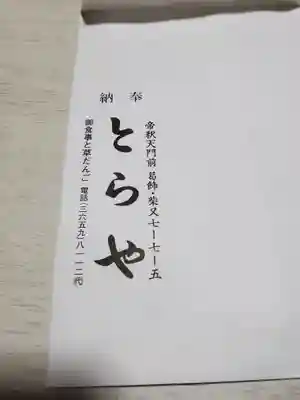 奉納
帝釈天門前 葛飾・柴又七ー七ー五
とらや
御食事と草だんご 電話(三六五九)八一一二㈹